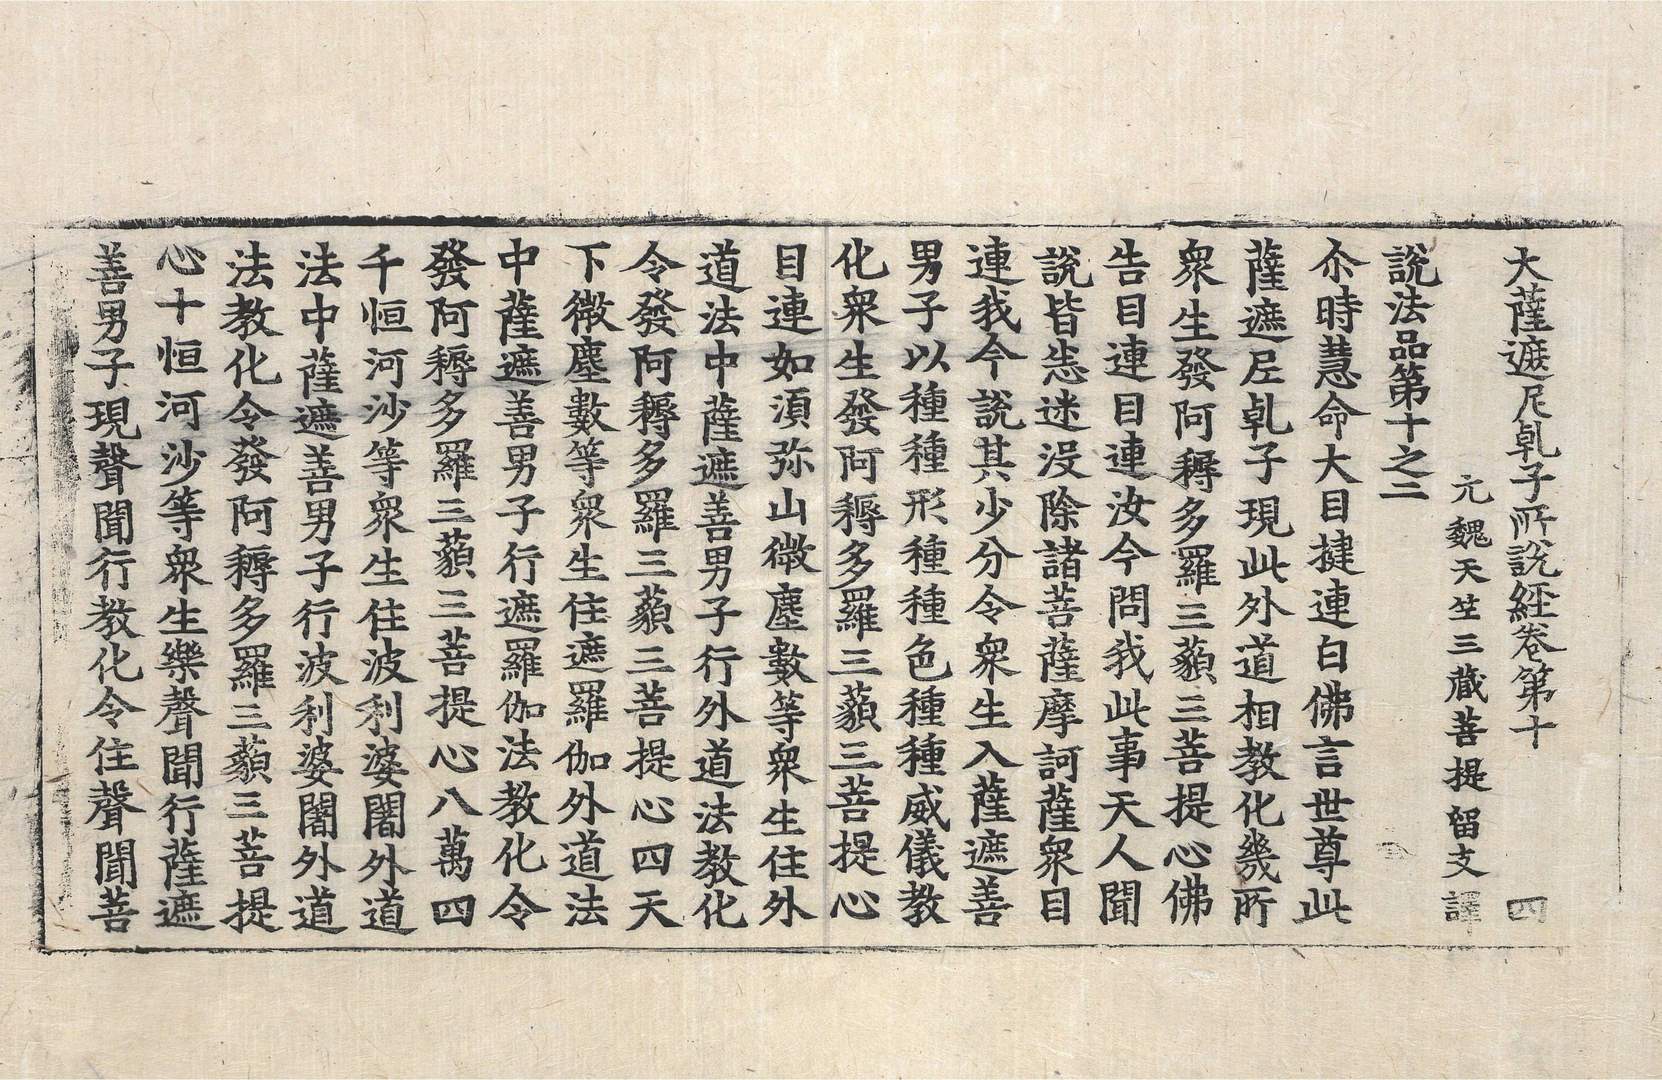 大薩遮尼乹子所說經卷第十　四
元魏天竺三藏菩提留支譯
說法品第十之二
尒時慧命大目揵連白佛言世尊此
薩遮尼乹子現此外道相教化幾所
衆生發阿耨多羅三藐三菩提心佛
告目連目連汝今問我此事天人聞
說皆恙迷沒除諸菩薩摩訶薩衆目
連我今說其少分令衆生入薩遮善
男子以種種形種種色種種威儀教
化衆生發阿耨多羅三藐三菩提心
目連如須弥山微塵數等衆生住外
道法中薩遮善男子行外道法教化
令發阿耨多羅三藐三菩提心四天
下微塵數等衆生住遮羅伽外道法
中薩遮善男子行遮羅伽法教化令
發阿耨多羅三藐三菩提心八萬四
千恒河沙等衆生住波利婆闍外道
法中薩遮善男子行波利婆闍外道
法教化令發阿耨多羅三藐三菩提
心十恒河沙等衆生樂聲聞行薩遮
善男子現聲聞行教化令住聲聞菩